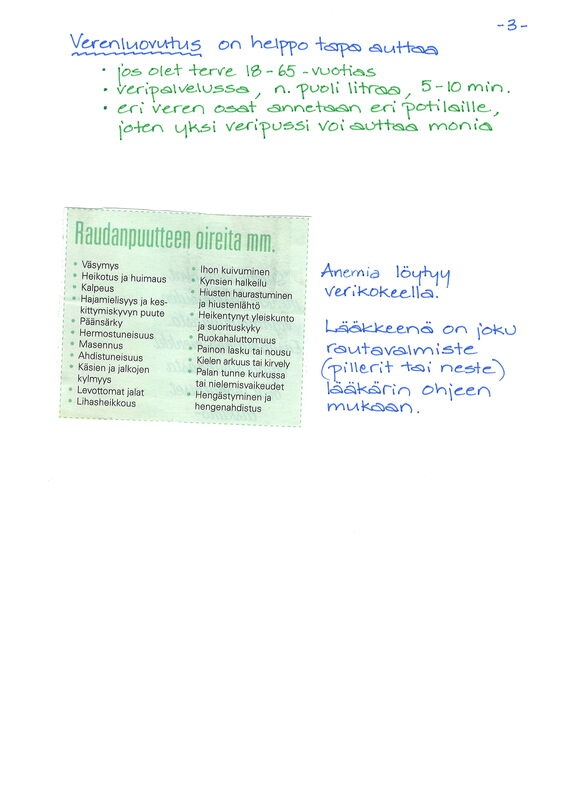 -3-
Verenluovutus on helppo tapa auttaa
• jos olet terve 18-65-vuotias
• veripalvelussa, n. puoli litraa, 5-10 min.
• eri veren osat annetaan eri potilaille,
joten yksi veripussi voi auttaa monia
Raudanpuutteen oireita mm.
• Väsymys
• Heikotus ja huimaus
• Kalpeus
• Hajamielisyys ja kes-
kittymiskyvyn puute
• Päänsärky
• Hermostuneisuus
• Masennus
• Ahdistuneisuus
• Käsien ja jalkojen
kylmyys
• Levottomat jalat
• Lihasheikkous
• Ihon kuivuminen
• Kynsien halkeilu
• Hiusten haurastuminen
ja hiustenlähtö
• Heikentynyt yleiskunto
ja suorituskyky
• Ruokahaluttomuus
• Painon lasku tai nousu
• Kielen arkuus tai kirvely
• Palan tunne kurkussa
tai nielemisvaikeudet
• Hengästyminen ja
hengenahdistus
Anemia löytyy
verikokeella.
Lääkkeenä on joku
rautavalmiste
(pillerit tai neste)
lääkärin ohjeen
mukaan.